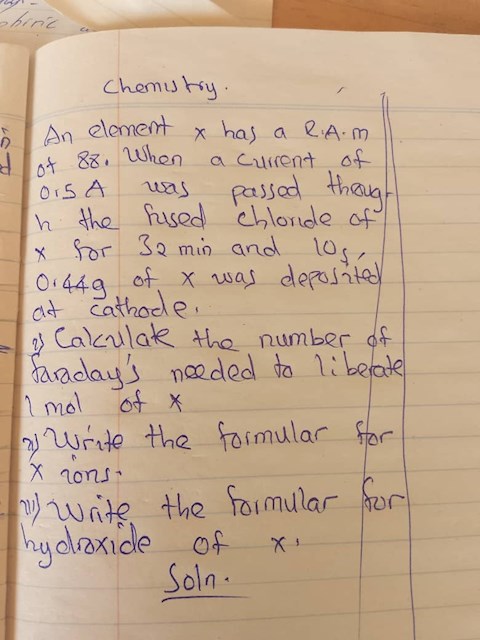 phiric
Chemistry.
An element x has a R.A.m
of 88. When a current of
0.5 A was passed throug
h the fused chloride of
x for 32 min and 10s,
0.44g of x was deposited
at cathode.
i) Calculate the number of
faraday's needed to liberate
1 mol of x
ii) Write the formular for
x ions.
iii) Write the formular for
hydroxide of x.
Soln.